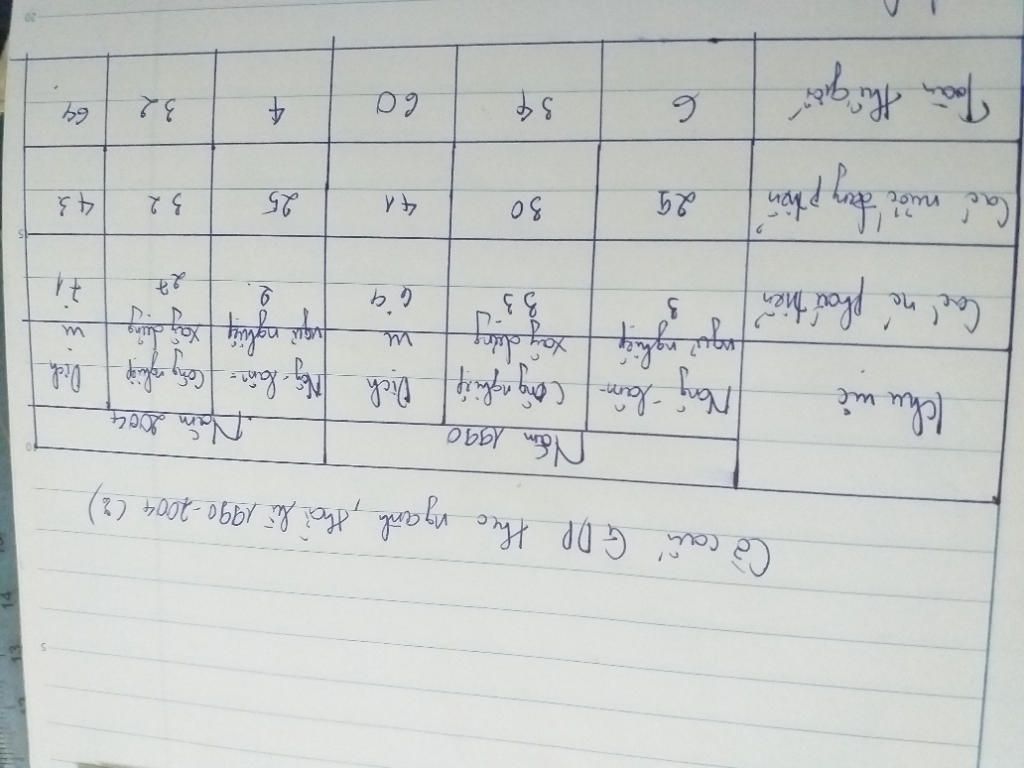 Cơ cấu GDP theo ngành, thời kì 1990-2004 (%)
Khu vực Năm 1990 Năm 2004
Nông - lâm - ngư nghiệp Công nghiệp xây dựng Dịch vụ Nông - lâm - ngư nghiệp Công nghiệp xây dựng Dịch vụ
Các nc phát triển 3 33 64 2 27 71
Các nước đang phát triển 29 30 41 25 32 43
Toàn thế giới 6 34 60 4 32 64